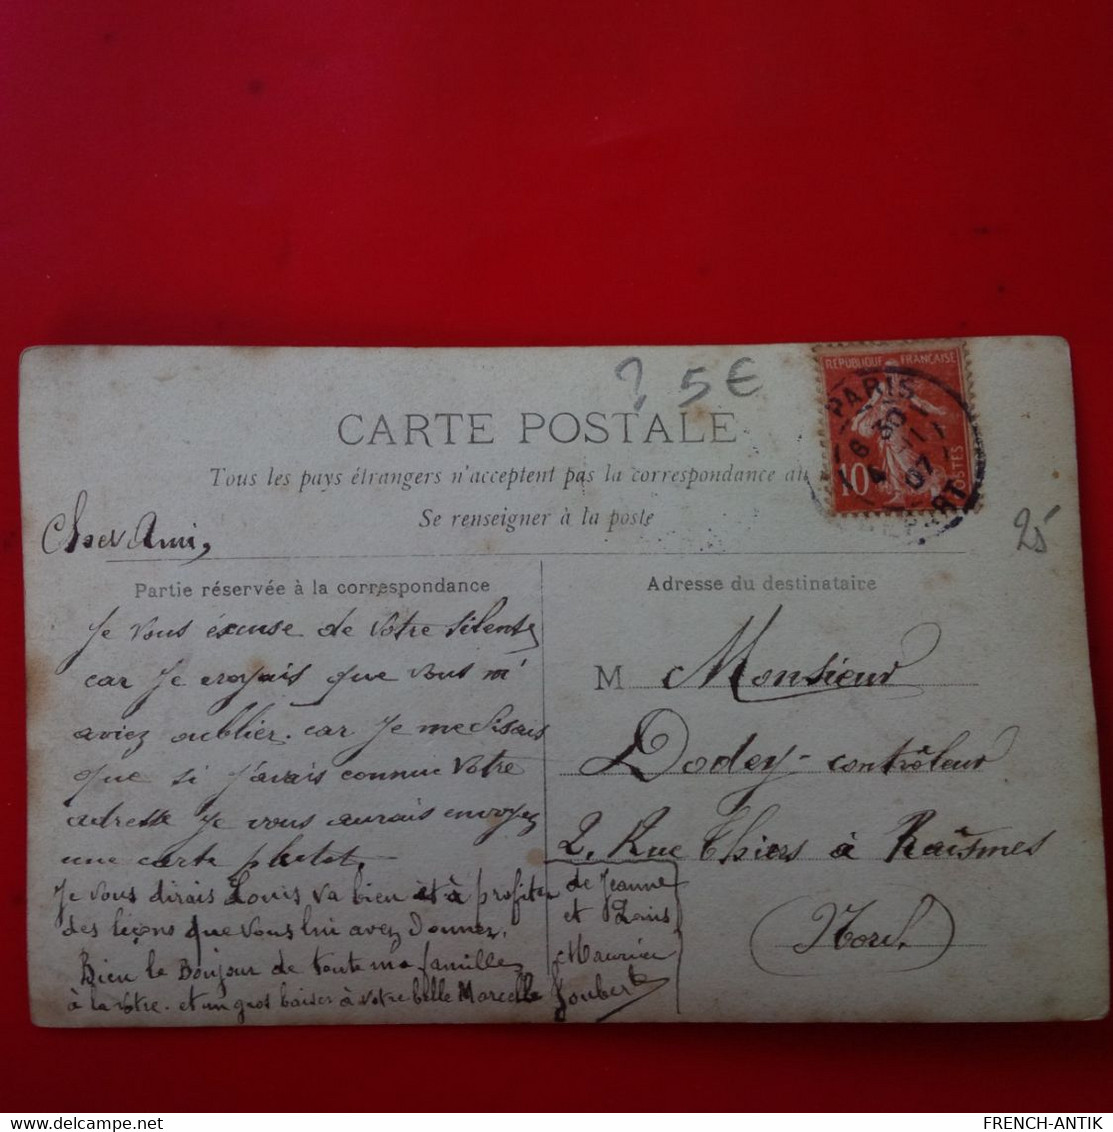 ? 5€
RÉPUBLIQUE FRANÇAISE
10
POSTES
PARIS
8 30
4 11
07
CARTE POSTALE
Tous les pays étrangers n'acceptent pas la correspondance au
Se renseigner à la poste
25
Cher Ami,
Partie réservée à la correspondance
Je vous éxcuse de votre silense
car Je croyais que vous m'
aviez oublier. car Je me disais
que si J'avais connue votre
adresse Je vous aurais envoyez
une carte plutot. -
Je vous dirais Louis va bien et à profiter
des leçons que vous lui avez Donner.
Bien le Bonjour de toute ma famille
à la vôtre. et un gros baiser à votre belle Marcelle
de Jeanne
et Louis
Maurice
Joubert
Adresse du destinataire
M Monsieur
Dodey - contrôleur
2. Rue Thiers à Raismes
(Nord.)
FRENCH-ANTIK